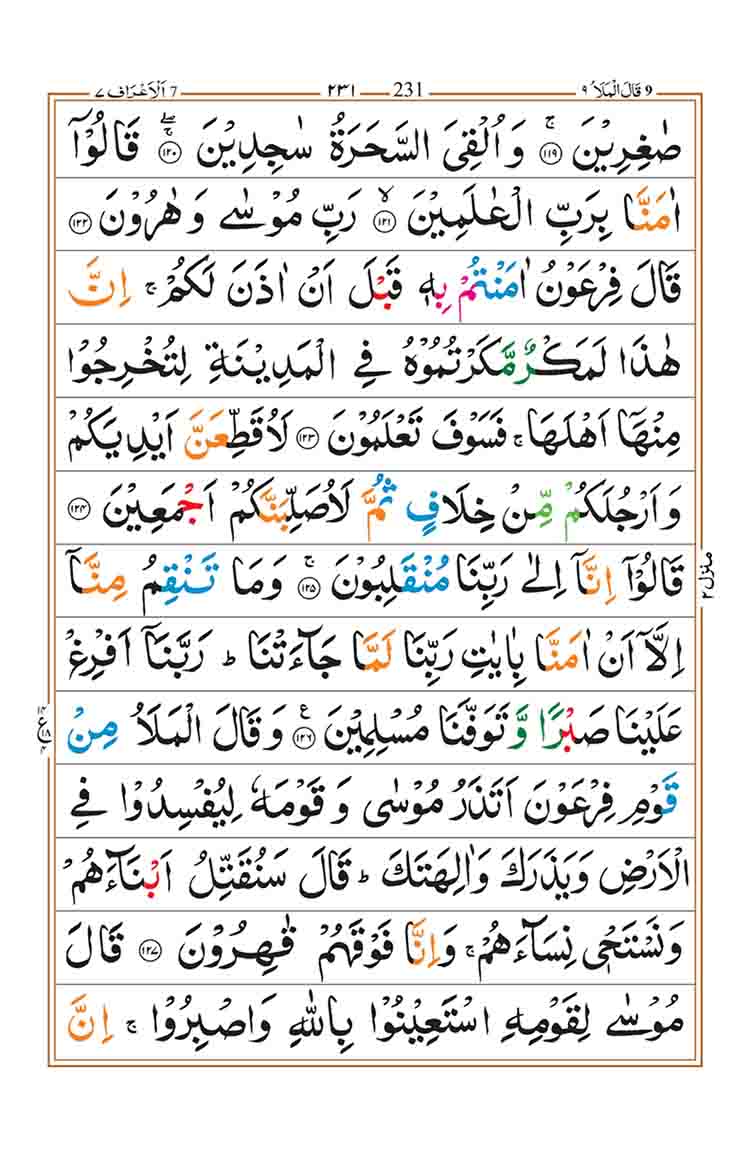 9 قَالَ الْمَلَاُ ٩ 231 ٢٣١ 7 اَلْاَعْرَاف ٧
صٰغِرِيْنَ ۚ ﴿١١٩﴾ وَ اُلْقِيَ السَّحَرَةُ سٰجِدِيْنَ ۚۖ ﴿١٢٠﴾ قَالُوْۤا
اٰمَنَّا بِرَبِّ الْعٰلَمِيْنَ ۙ ﴿١٢١﴾ رَبِّ مُوْسٰى وَ هٰرُوْنَ ﴿١٢٢﴾
قَالَ فِرْعَوْنُ اٰمَنْتُمْ بِهٖ قَبْلَ اَنْ اٰذَنَ لَكُمْ ۚ اِنَّ
هٰذَا لَمَكْرٌ مَّكَرْتُمُوْهُ فِى الْمَدِيْنَةِ لِتُخْرِجُوْا
مِنْهَاۤ اَهْلَهَا ۚ فَسَوْفَ تَعْلَمُوْنَ ﴿١٢٣﴾ لَاُقَطِّعَنَّ اَيْدِيَكُمْ
وَ اَرْجُلَكُمْ مِّنْ خِلَافٍ ثُمَّ لَاُصَلِّبَنَّكُمْ اَجْمَعِيْنَ ﴿١٢٤﴾
قَالُوْۤا اِنَّاۤ اِلٰى رَبِّنَا مُنْقَلِبُوْنَ ۚ ﴿١٢٥﴾ وَمَا تَنْقِمُ مِنَّاۤ
اِلَّاۤ اَنْ اٰمَنَّا بِاٰيٰتِ رَبِّنَا لَمَّا جَآءَتْنَا ؕ رَبَّنَاۤ اَفْرِغْ
عَلَيْنَا صَبْرًا وَّ تَوَفَّنَا مُسْلِمِيْنَ ﴿١٢٦﴾ ع وَ قَالَ الْمَلَاُ مِنْ
قَوْمِ فِرْعَوْنَ اَتَذَرُ مُوْسٰى وَ قَوْمَهٗ لِيُفْسِدُوْا فِى
الْاَرْضِ وَ يَذَرَكَ وَ اٰلِهَتَكَ ؕ قَالَ سَنُقَتِّلُ اَبْنَآءَهُمْ
وَ نَسْتَحْيٖ نِسَآءَهُمْ ۚ وَ اِنَّا فَوْقَهُمْ قٰهِرُوْنَ ﴿١٢٧﴾ قَالَ
مُوْسٰى لِقَوْمِهِ اسْتَعِيْنُوْا بِاللّٰهِ وَ اصْبِرُوْا ۚ اِنَّ
منزل ٢